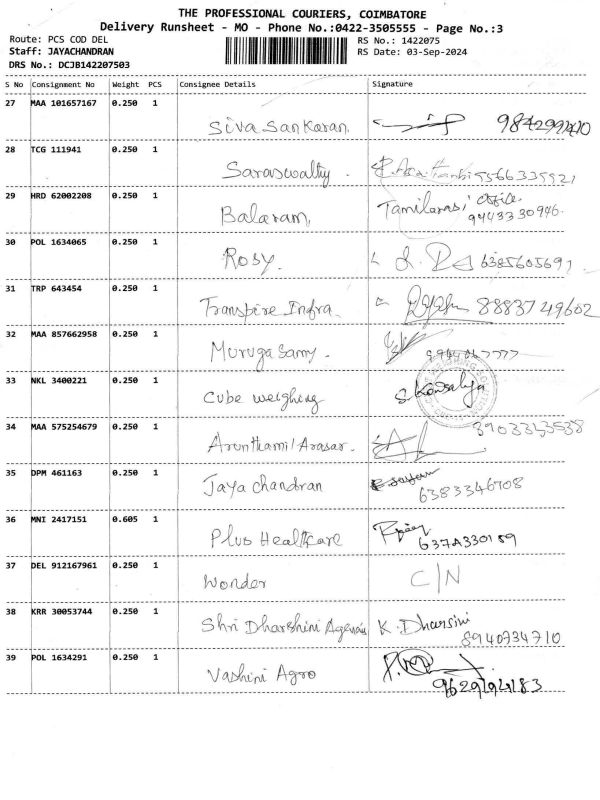 THE PROFESSIONAL COURIERS, COIMBATORE
Delivery Runsheet - MO - Phone No.:0422-3505555 - Page No.:3
Route: PCS COD DEL
RS No.: 1422075
Staff: JAYACHANDRAN
RS Date: 03-Sep-2024
DRS No.: DCJB142207503
S No Consignment No Weight PCS Consignee Details Signature
27 MAA 101657167 0.250 1
Siva Sankaran
28 TCG 111941 0.250 1
Saraswathy.
29 HRD 62002208 0.250 1
Balaram, Tamilarasi Office.
9443330946.
30 POL 1634065 0.250 1
Rosy. 6385605691
31 TRP 643454 0.250 1
Transpire Infra. 8883749602
32 MAA 857662958 0.250 1
Muruga Samy.
33 NKL 3400221 0.250 1
Cube weighing S. Kowsalya
34 MAA 575254679 0.250 1
Arunthamil Arasar.
35 DPM 461163 0.250 1
Jaya chandran
6383346708
36 MNI 2417151 0.605 1
Plus Healthcare
37 DEL 912167961 0.250 1
Wonder C/N
38 KRR 30053744 0.250 1
Shri Dharshini Agencies K. Dharsini
8940734710
39 POL 1634291 0.250 1
Vashini Agro